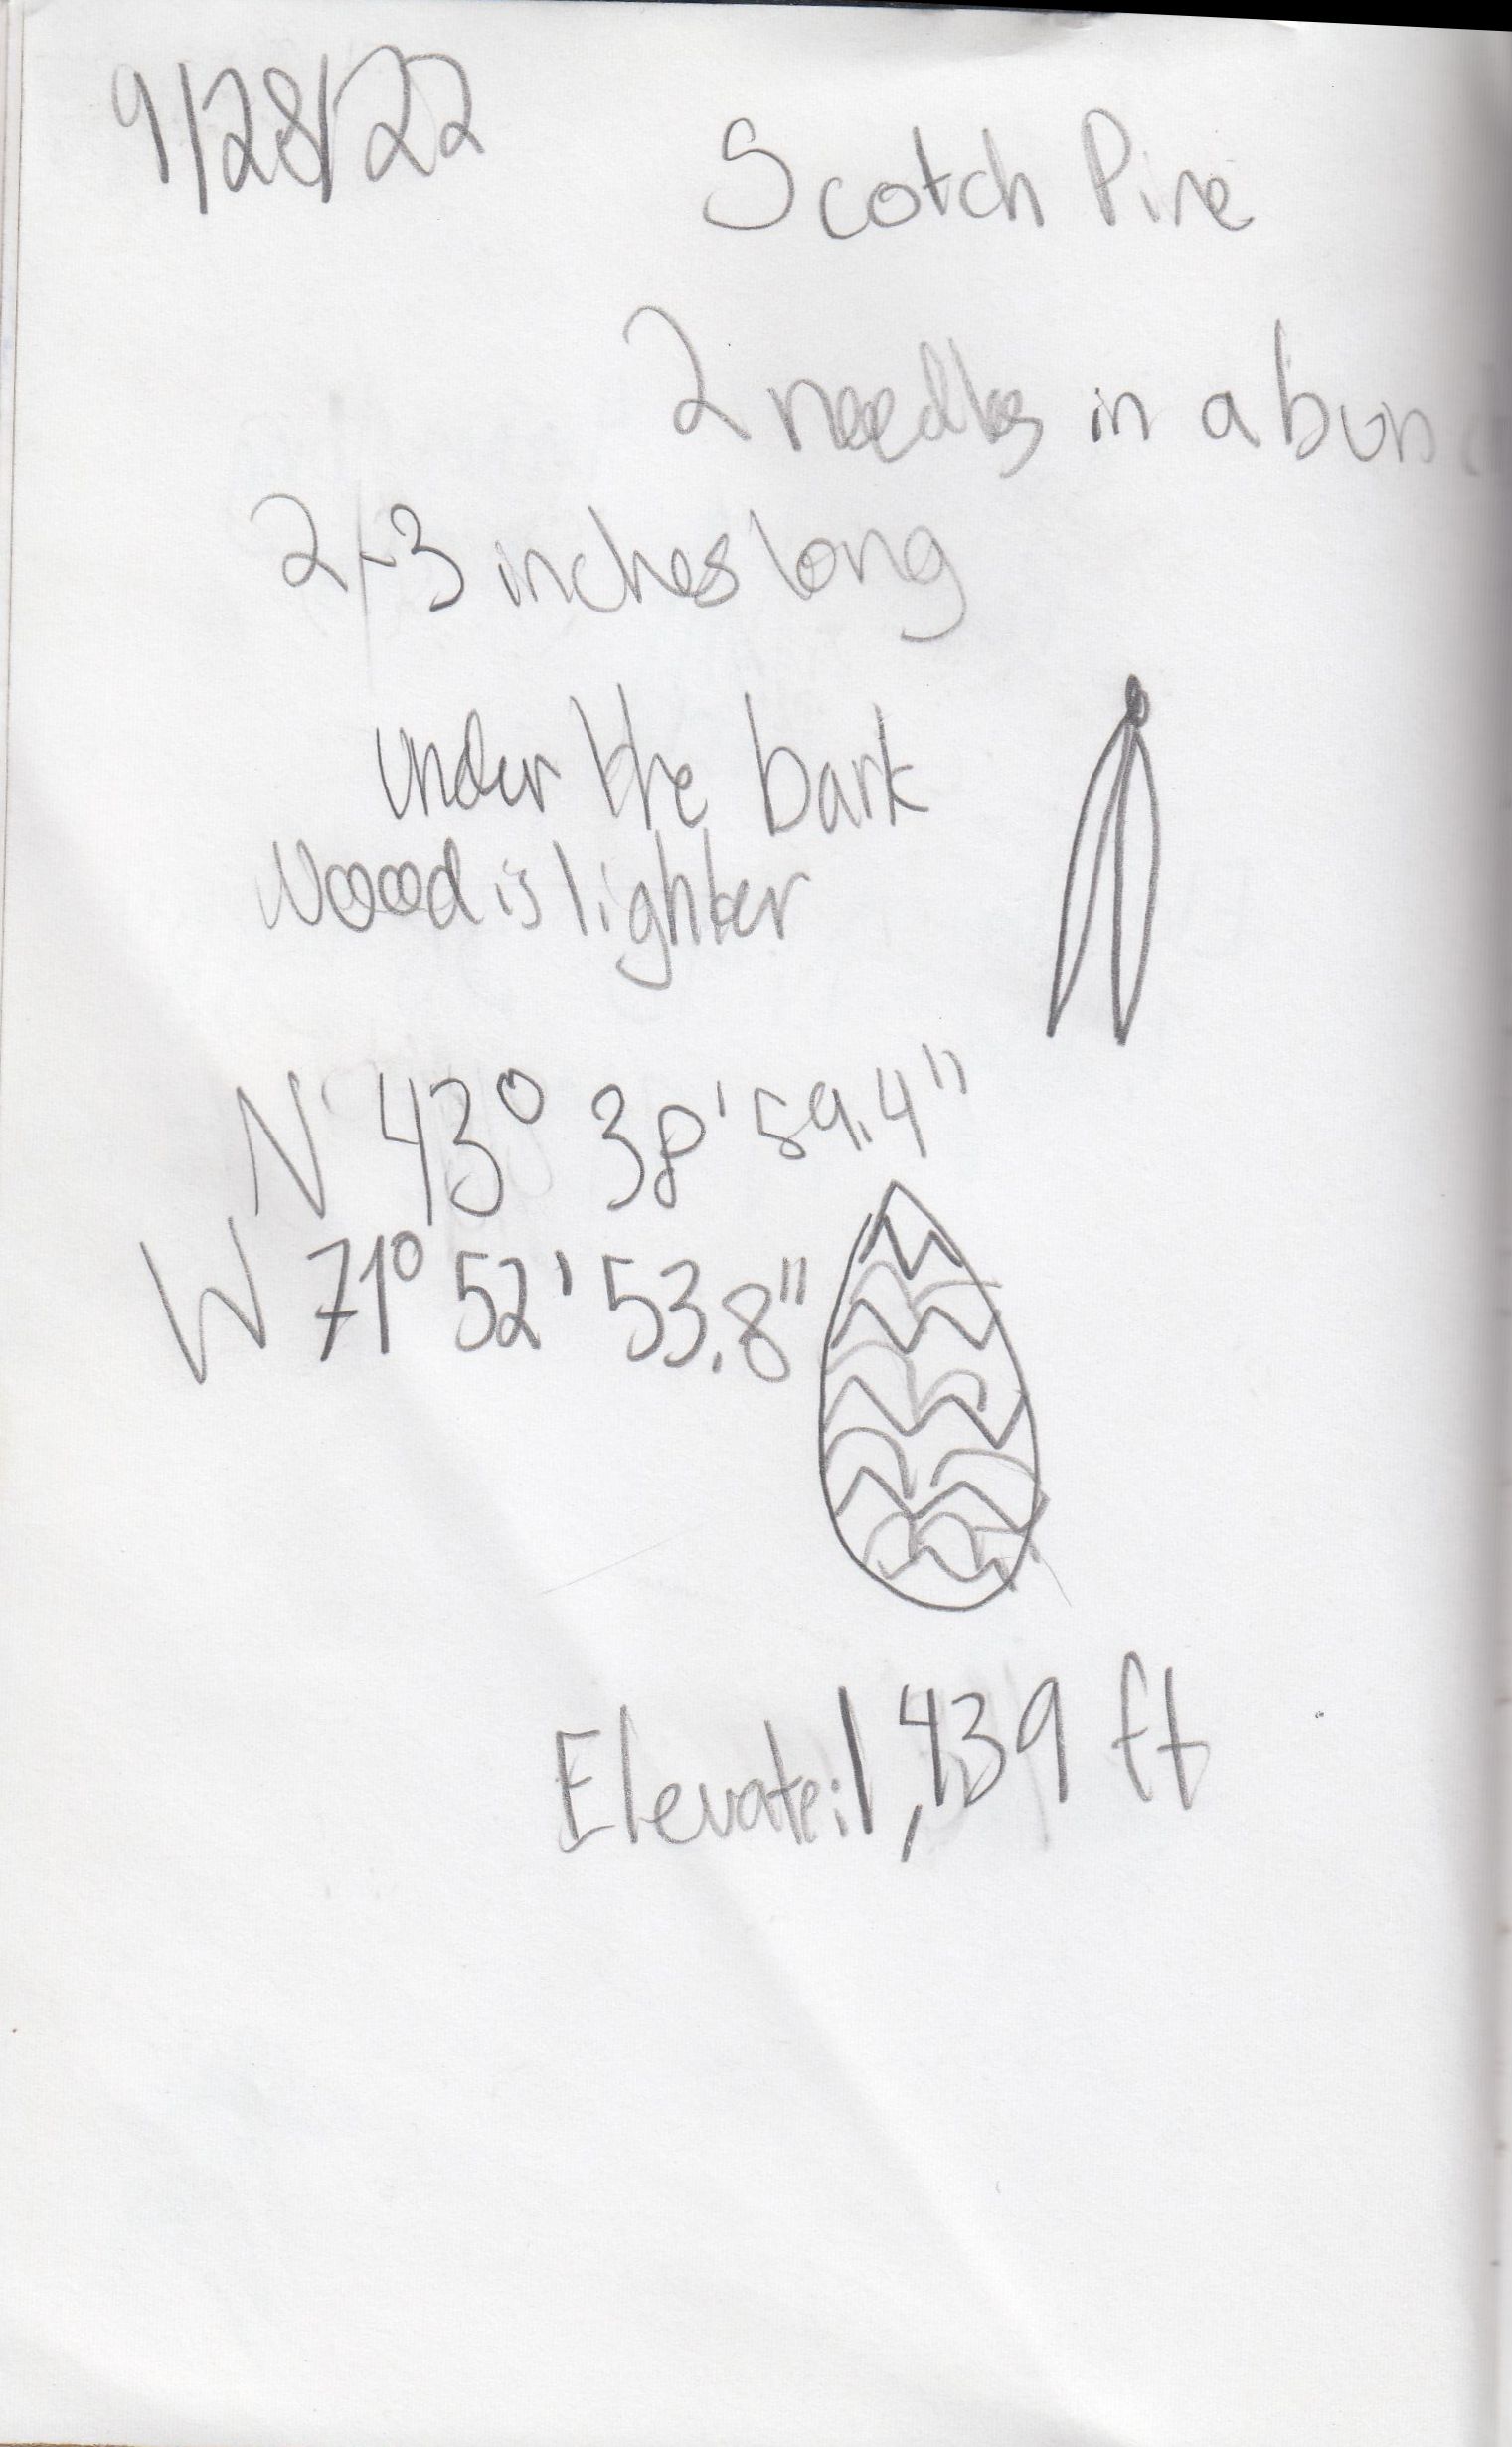 9/28/22
Scotch Pine
2 needles in a bun
2-3 inches long
under the bark
Woood is lighter
N 43° 38' 59.4"
W 71° 52' 53.8"
Elevate: 1,439 ft